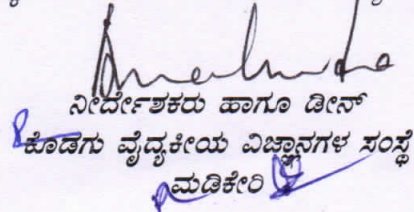 ನಿರ್ದೇಶಕರು ಹಾಗೂ ಡೀನ್
ಕೊಡಗು ವೈದ್ಯಕೀಯ ವಿಜ್ಞಾನಗಳ ಸಂಸ್ಥೆ
ಮಡಿಕೇರಿ